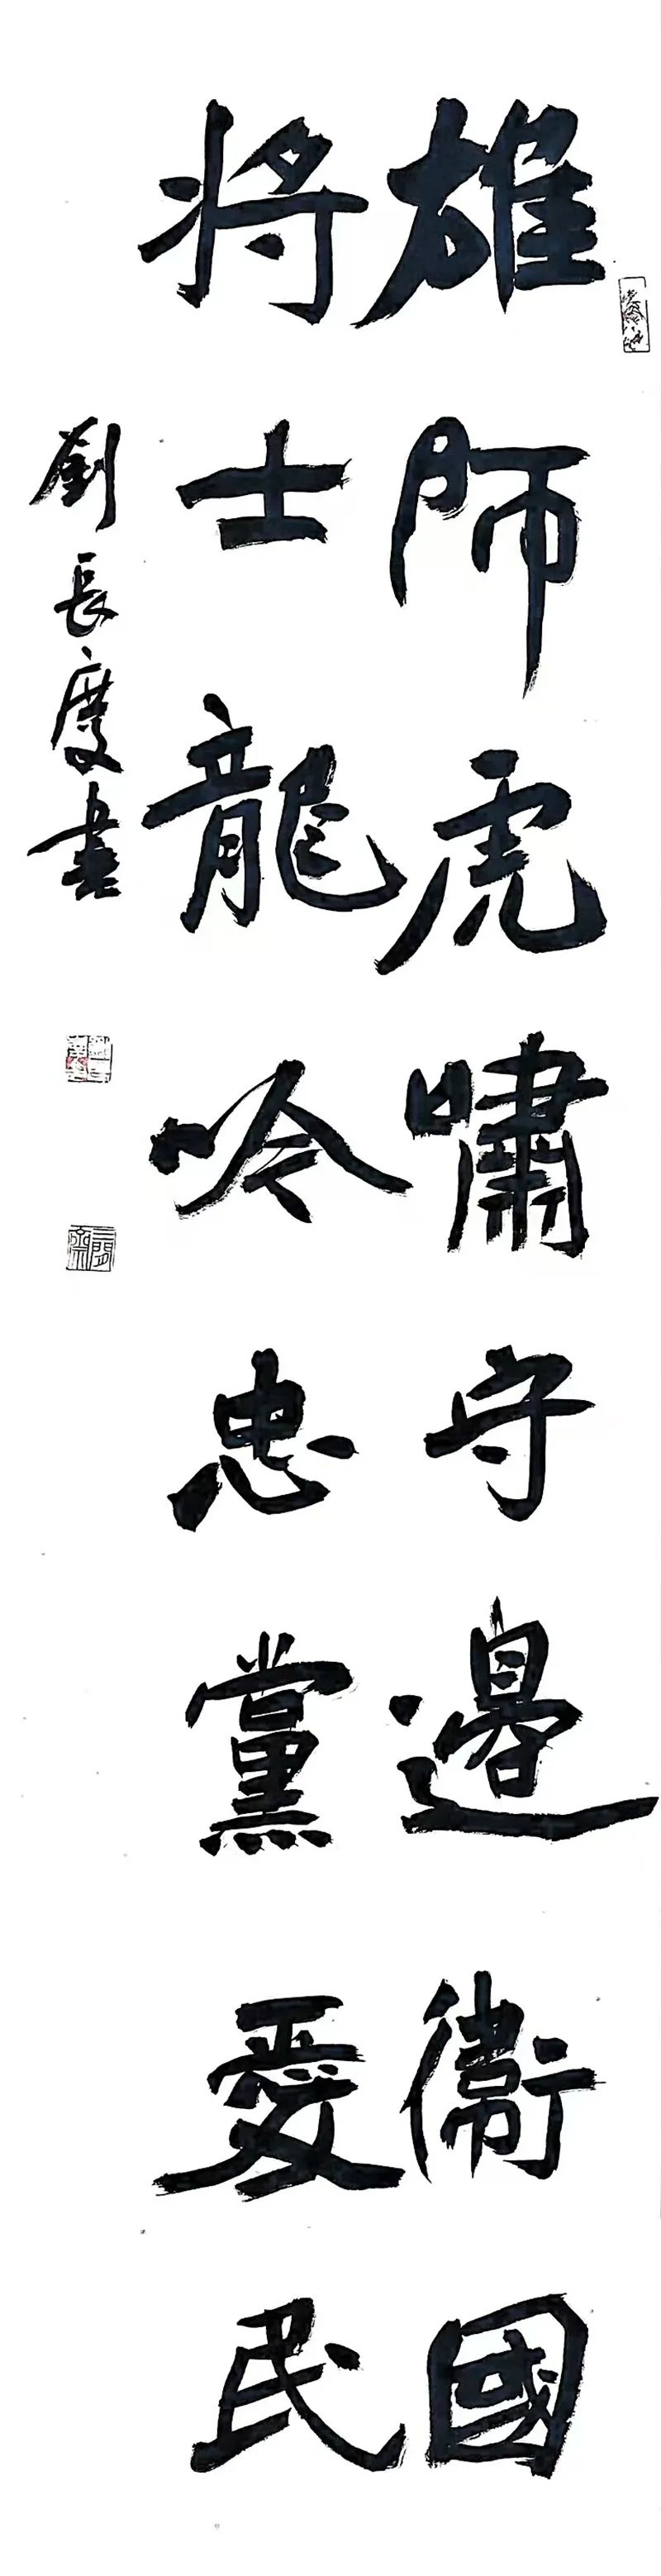 雄師虎嘯守邊衛國
將士龍吟忠黨愛民
劉長慶書